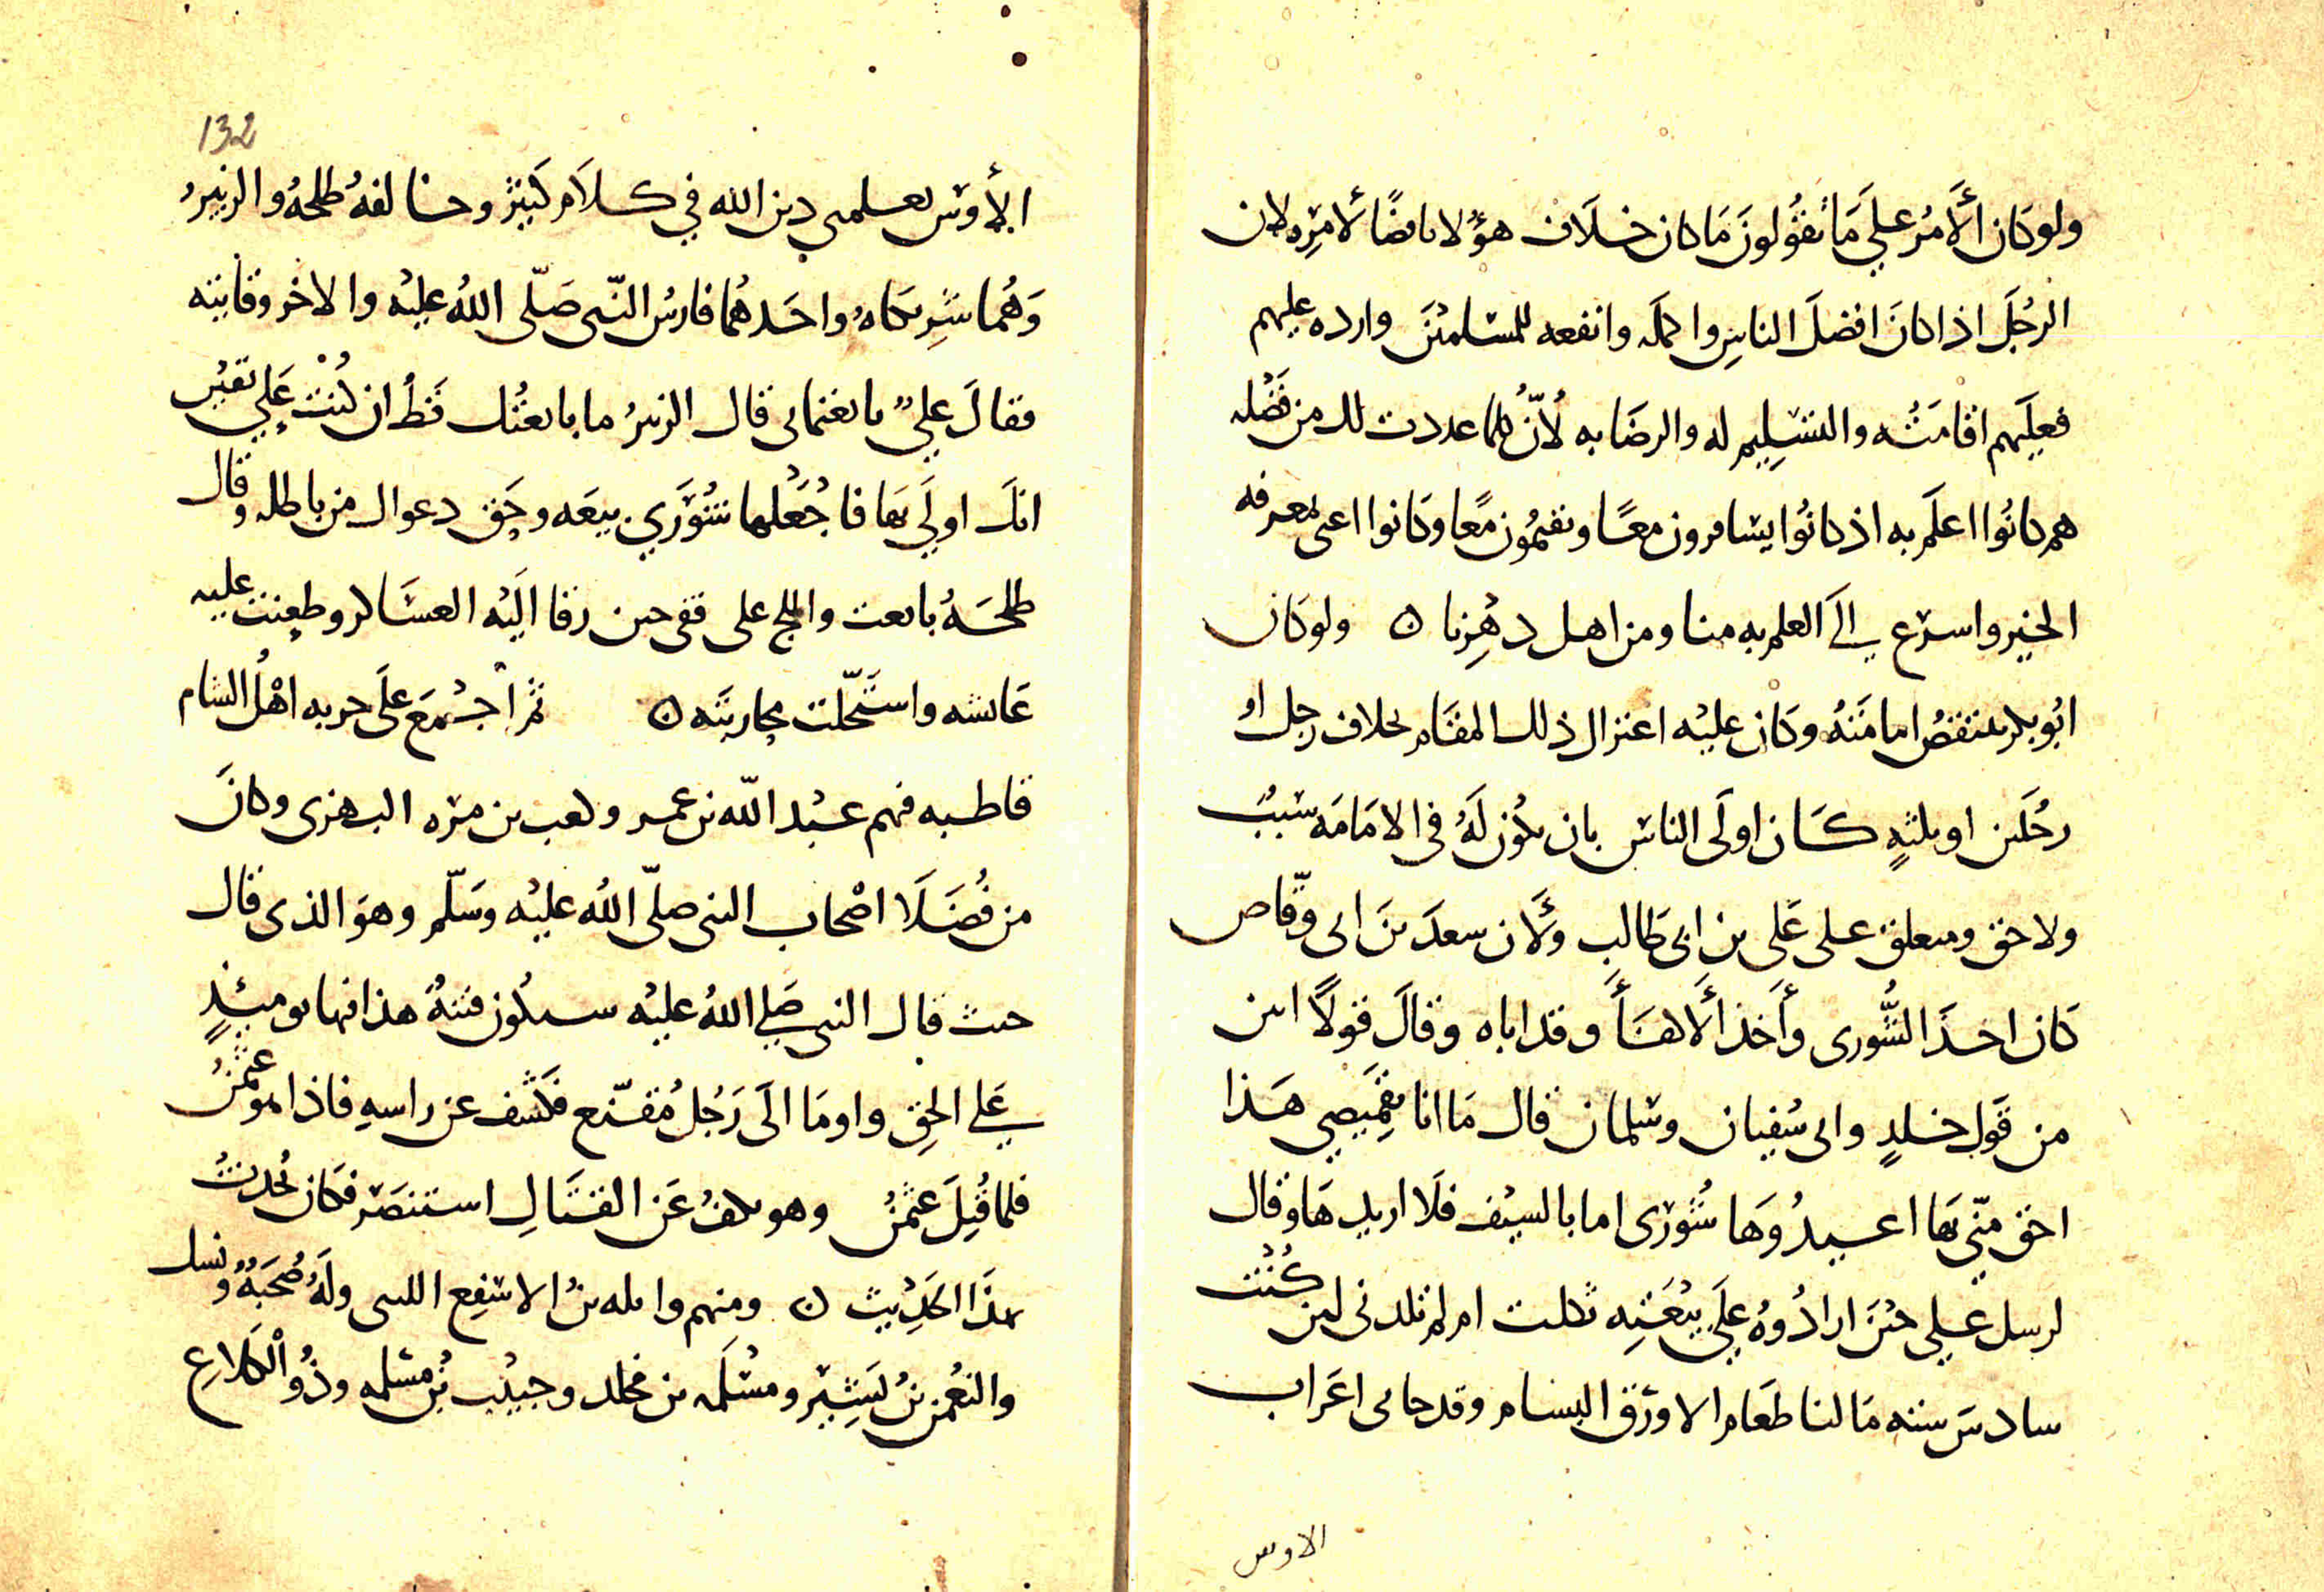 ولو كان الأمر علي ما تقولون ما كان خلاف هؤلا ناقضًا لامره لان
الرجل اذا كان افضل الناس واكمله وانفعه للمسلمين وارده عليهم
فعليهم اقامته والتسليم له والرضا به لأن كلما عددت لك من فضله
هم كانوا اعلم به اذ كانوا يسافرون معًا ويقيمون معًا وكانوا اعنى بمعرفه
الخير واسرع الى العلم به منا ومن اهل دهرنا ں ولو كان
ابو بكر تنتقض امامته وكان عليه اعتزال ذلك المقام بخلاف رجل او
رجلين او ثلثة كان اولى الناس بان يكون له فى الامامه سبب
ولا حق ومتعلق على على بن ابى طالب ولأن سعد بن ابى وقاص
كان احد الشورى وأحد ألاكفأ وقد اباه وقال قولًا ابين
من قول خلد وابى سفيان وسلمان قال ما انا بقميصي هذا
احق منى بها اعيدوها شورى اما بالسيف فلا اريدها وقال
لرسل علي حين ارادوه على بيعته ثكلت ام لم تلدنى لين كنت
سادس سته ما لنا طعام الا ورق البشام وقد جانى اعراب
الاوس
132
الأوس تعلمنى دين الله في كلام كثير وخالفه طلحة والزبير
وهما شريكاه واحدهما فارس النبى صلى الله عليه والاخر وقايته
فقال علي بايعتمانى قال الزبير ما بايعتك قط ان كنت علي يقين
انك اولي بها فاجعلها شوري بيعه وحق دعواك من باطله وقال
طلحة بايعت واللج على قفى حين زفا اليه العساكر وطعنت عليه
عايشه واستحلت محاربته ں ثم أجمع على حربه اهل الشام
قاطبه فهم عبد الله بن عمر وكعب بن مره البهزى وكان
من فضلا اصحاب النبى صلى الله عليه وسلم وهو الذى قال
حيث قال النبى صلي الله عليه ستكون فتنة هذا فيها يوميئذ
علي الحق واوما الى رجل مقنع فكشف عن راسه فاذا هو عثمن
فلما قتل عثمن وهو يكف عن القتال استنصر فكان يحدث
بهذا الحديث ں ومنهم واثله بن الاسقع الليثى وله صحبة ونسك
والنعمن بن بشير ومسلمه بن مخلد وحبيب بن مسلمه وذو الكلاع